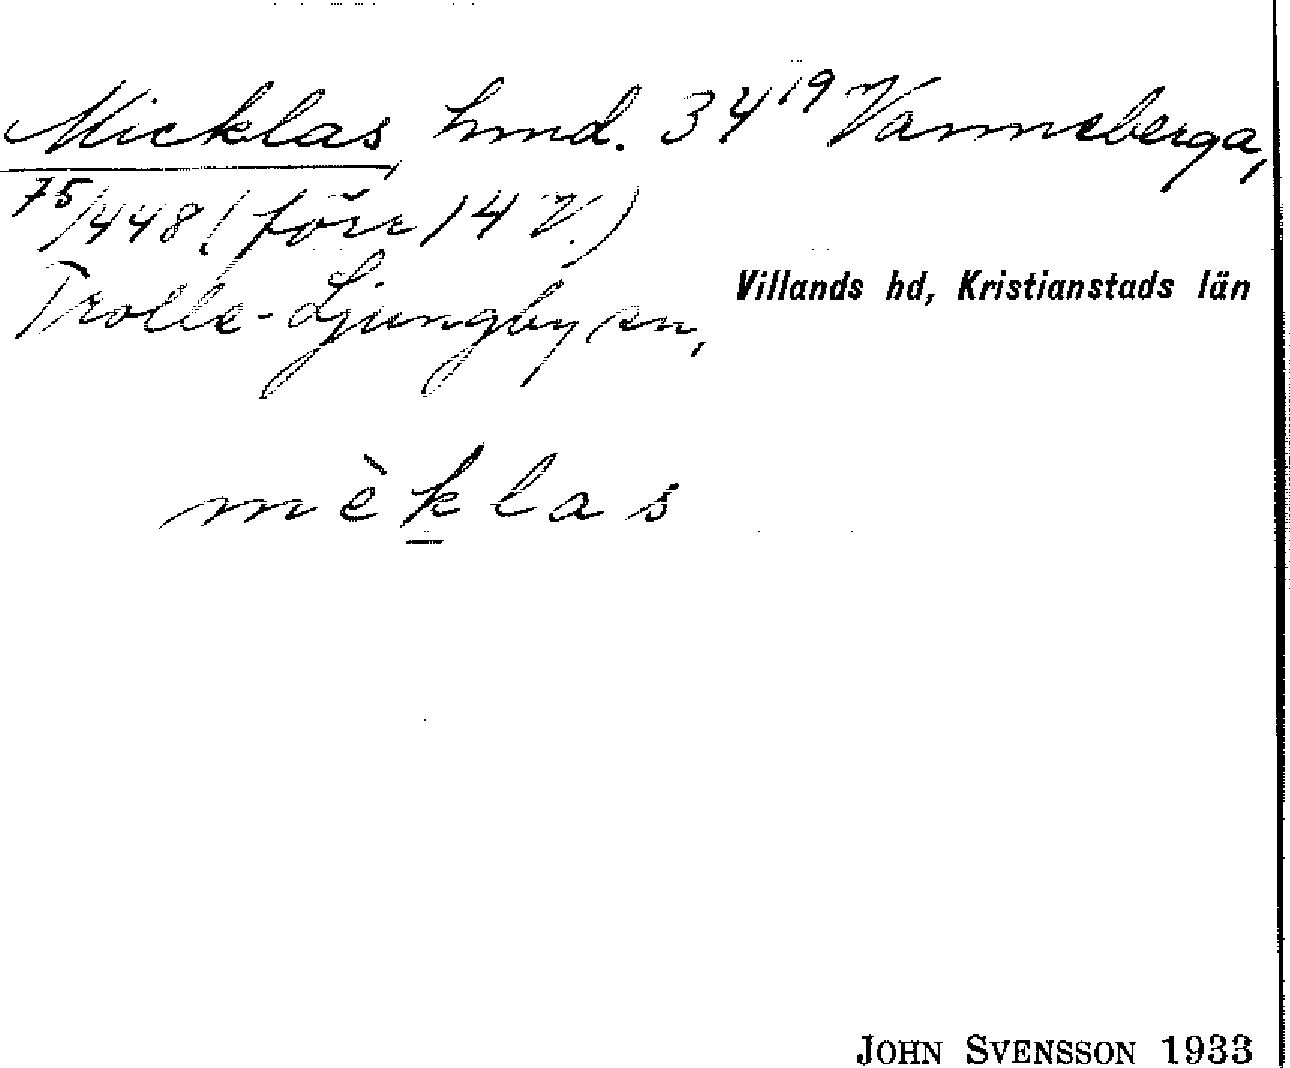 Micklas, hmd. 34¹⁹ Vanneberga,
75/448 (förr 14 V.)
Trolle-Ljungby sn,
Villands hd, Kristianstads län
mèklas
JOHN SVENSSON 1933